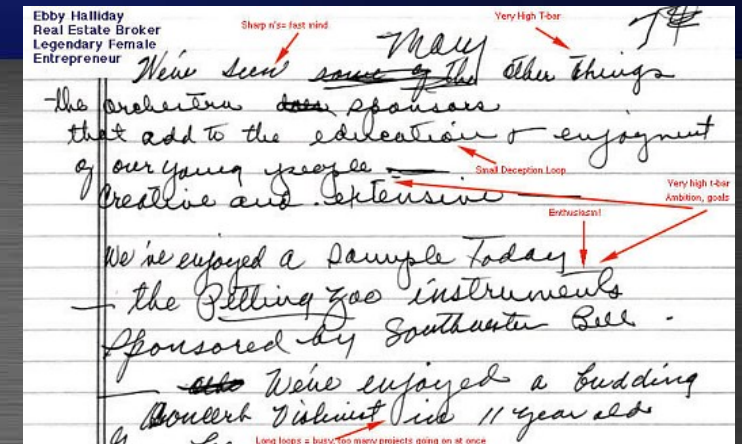 Ebby Halliday
Real Estate Broker
Legendary Female
Entrepreneur
Sharp n's= fast mind
Very High T-bar
7#
Many
We've seen some of the other things
the orchestra does sponsors
that add to the education & enjoyment
Small Deception Loop
of our young people —
Very high t-bar
Ambition, goals
Creative and extensive —
Enthusiasm!
We've enjoyed a sample today
— the Petting Zoo instruments
sponsored by Southwestern Bell.
— We've enjoyed a budding
concert violinist in 11 year old
Long loops = busy, too many projects going on at once